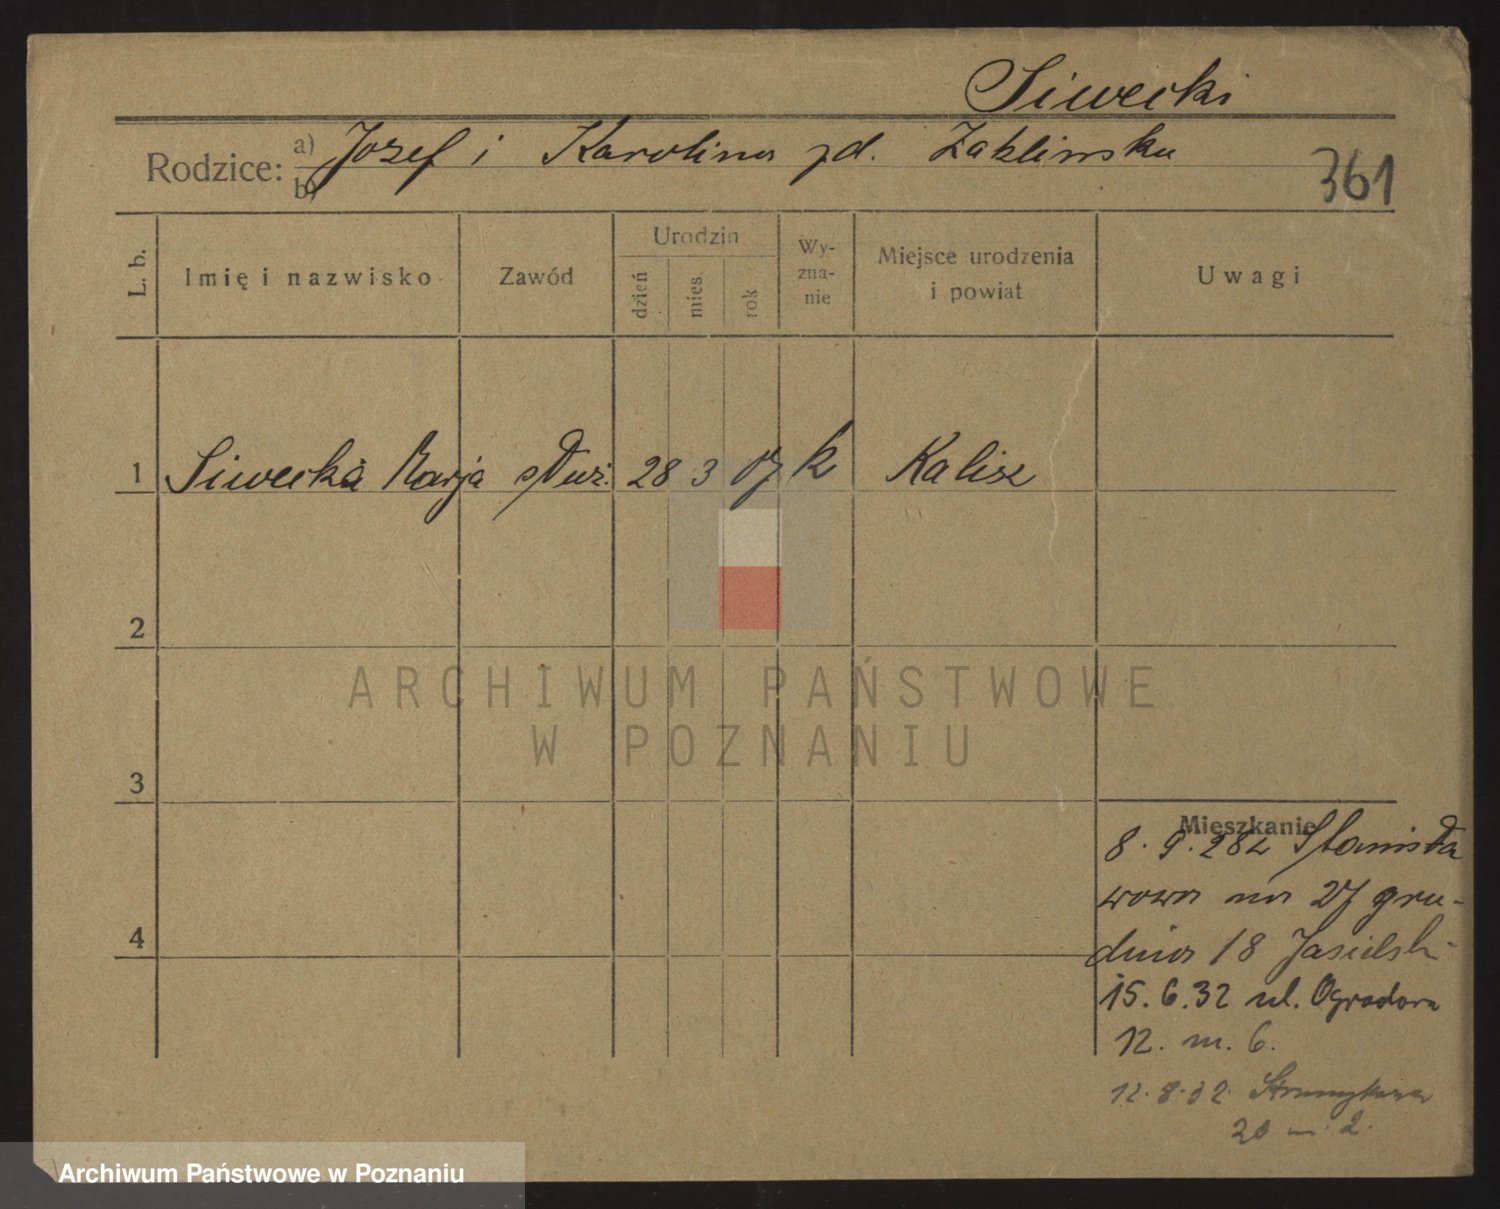 Siwecki
Rodzice: a) Józef i Karolina zd. Zaklinska
b)
361
L. b. Imię i nazwisko Zawód Urodzin dzień mies. rok Wy-zna-nie Miejsce urodzenia i powiat Uwagi
1 Siwecka Marja służ. 28 3 07 k Kalisz
2
3
4
Mieszkanie
8. 9. 28 z Stanisła
wowa na 27 gru-
dnia 18 Jasielsk
15. 6. 32 ul. Ogrodowa
12. m. 6.
12. 8. 32.
26 m. 2.
ARCHIWUM PAŃSTWOWE
W POZNANIU
Archiwum Państwowe w Poznaniu